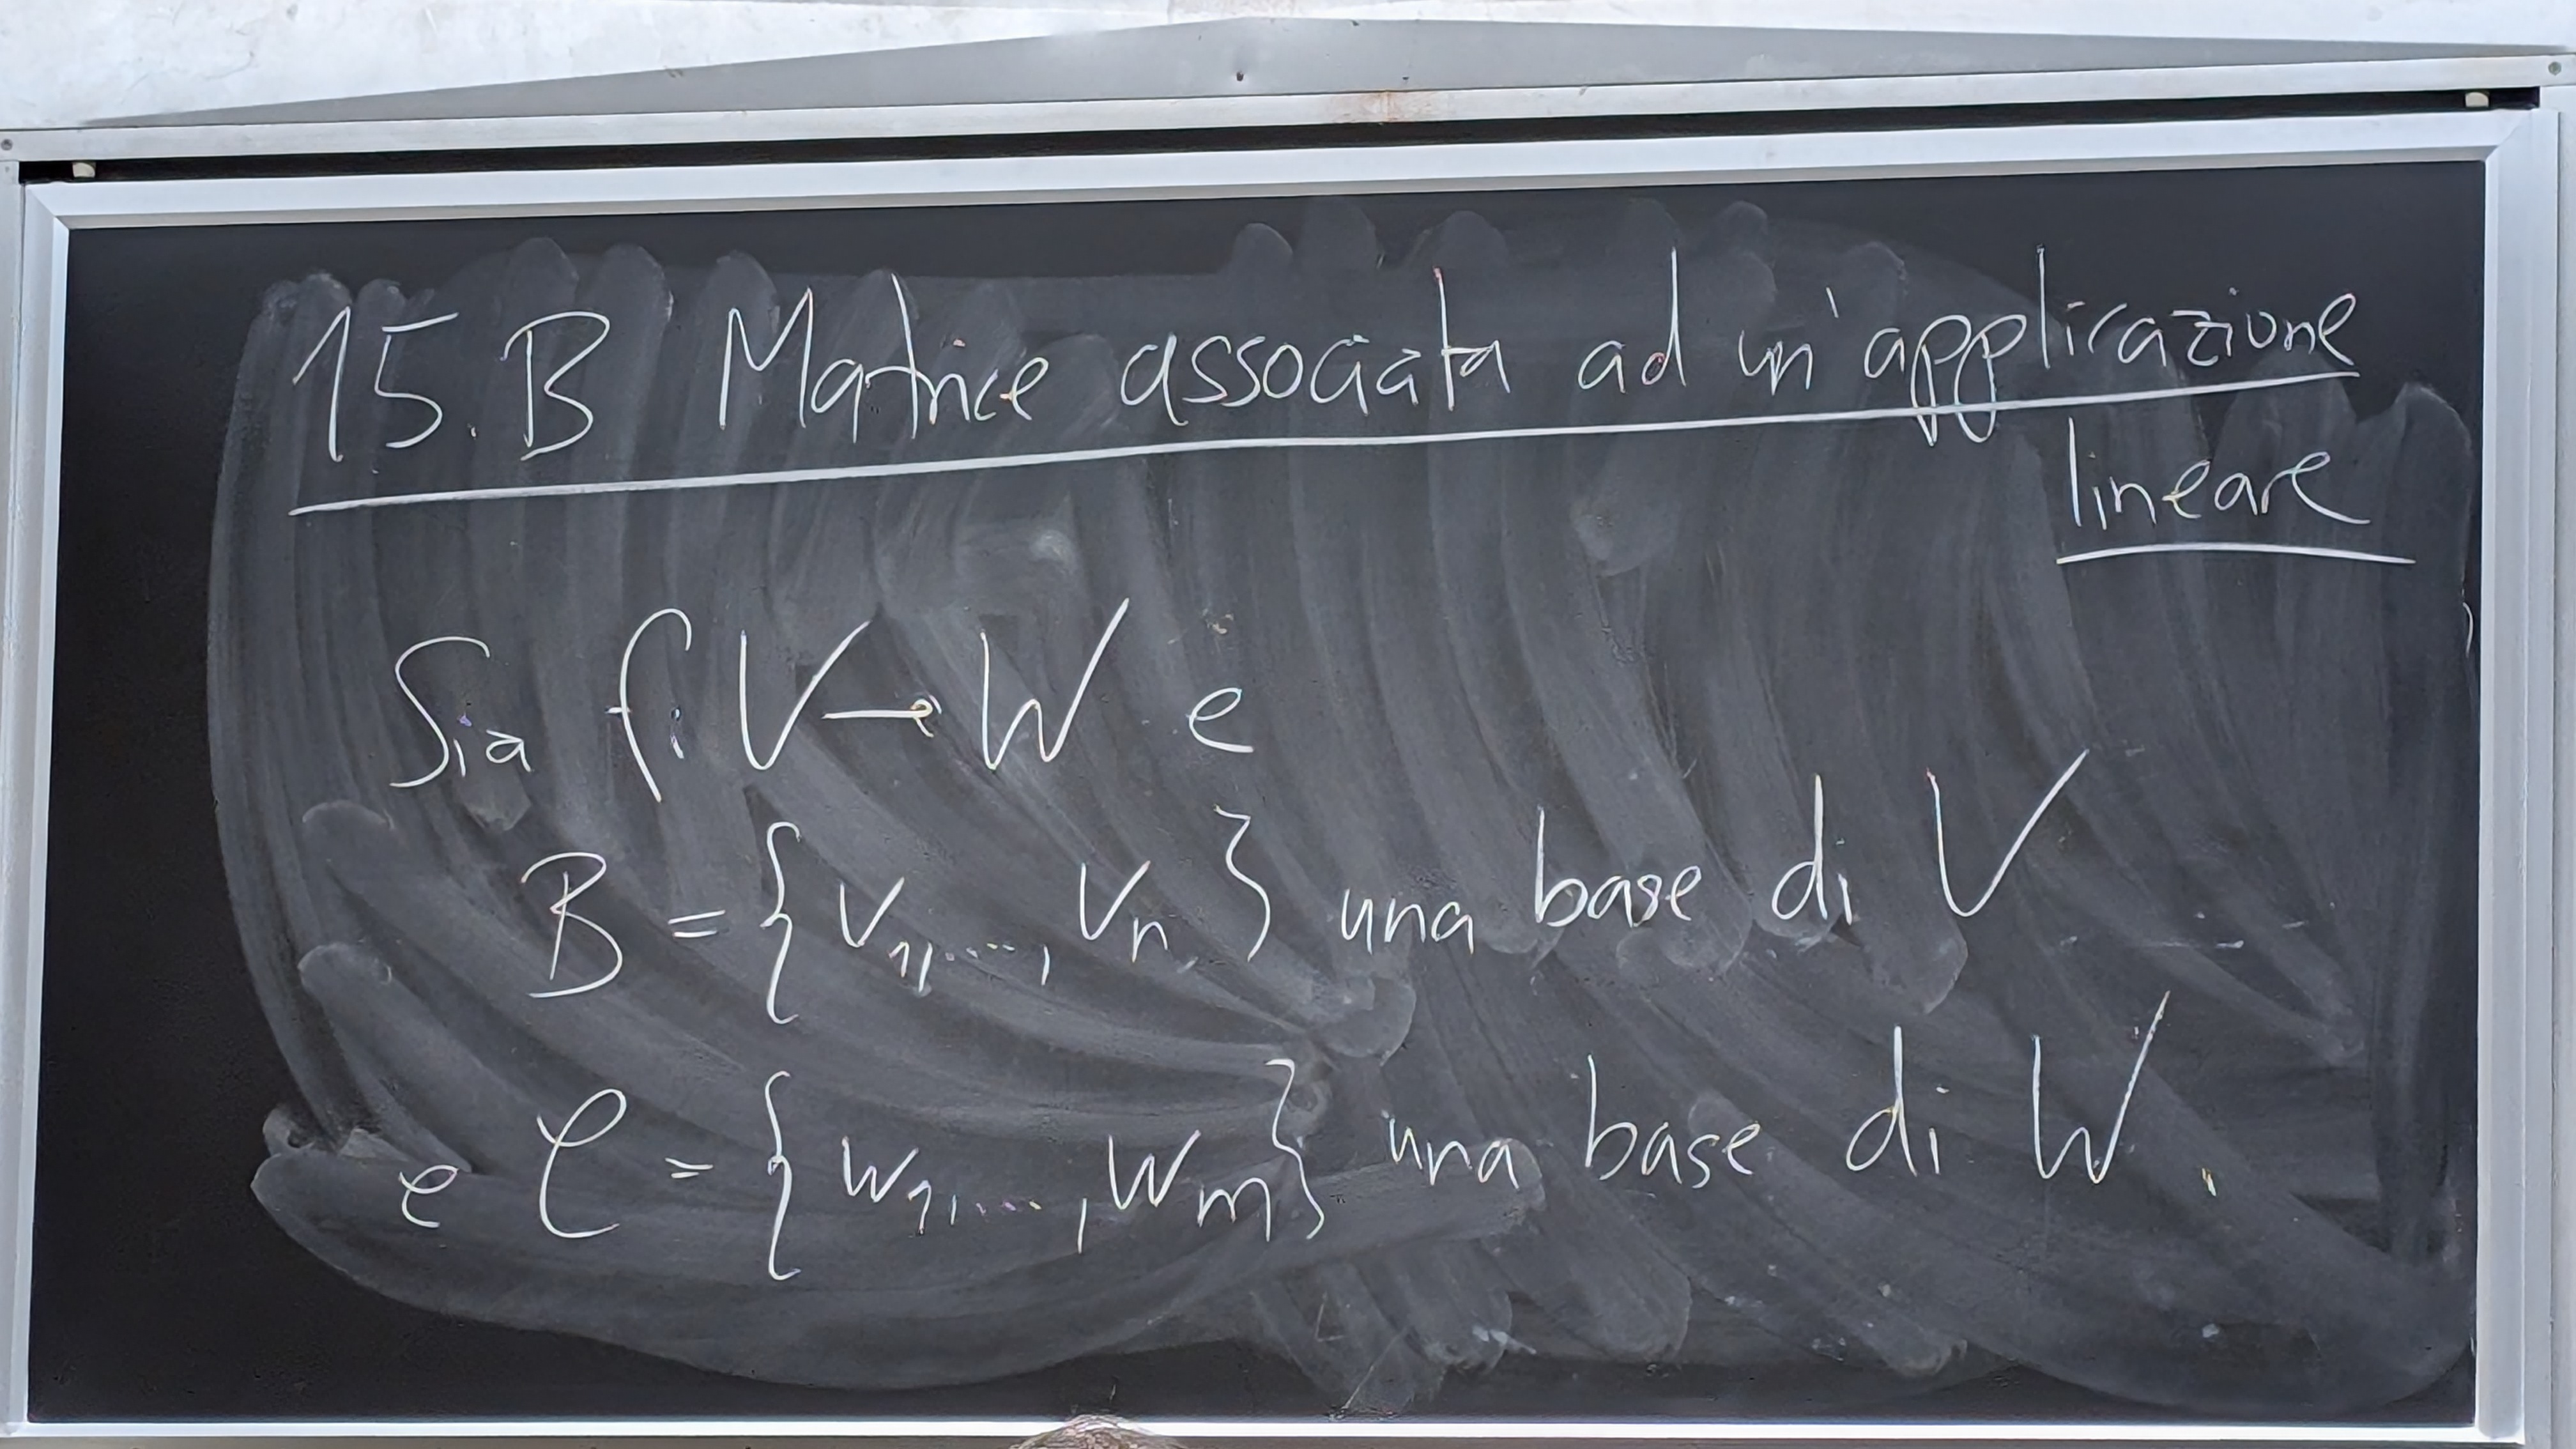 15.B Matrice associata ad un'applicazione
lineare
Sia f: V → W e
B = {v₁,...,vₙ} una base di V
e C = {w₁,...,wₘ} una base di W.